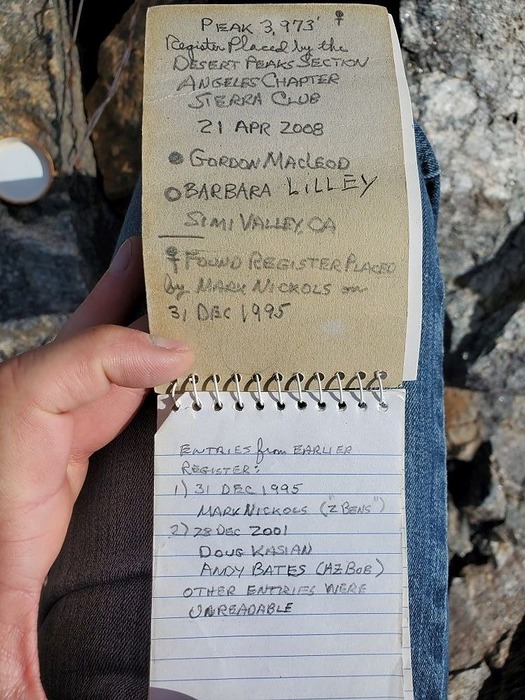 PEAK 3,973'
Register Placed by the
DESERT PEAKS SECTION
ANGELES CHAPTER
SIERRA CLUB
21 APR 2008
GORDON MACLEOD
BARBARA LILLEY
SIMI VALLEY, CA
FOUND REGISTER PLACED
by MARK NICKOLS on
31 DEC 1995
ENTRIES from EARLIER
REGISTER:
1) 31 DEC 1995
MARK NICKOLS ("Z BENS")
2) 28 DEC 2001
DOUG KASIAN
ANDY BATES (AZ BOB)
OTHER ENTRIES WERE
UNREADABLE